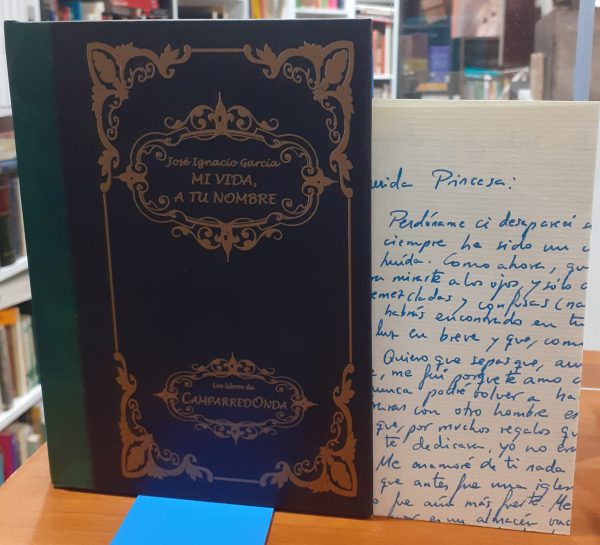 José Ignacio García
MI VIDA,
A TU NOMBRE
Los libros de
CAMPARREDONDA
rida Princesa:
Perdóname ci desaparecí
ciempre ha sido un
huida. Como ahora, qu
mirarte a los ojos, y sólo
emezcladas y confusas (na
habrás encontrado en tu
luz en breve y que, com
Quiero que sepas que, au
, me fui porque te amo
unca podré volver a ha
con otro hombre
que, por muchos regalos qu
te dedicara, yo no era
Me enamoré de ti nada
que antes fue una igle
fue aún más fuerte. Me
es un almacén vac